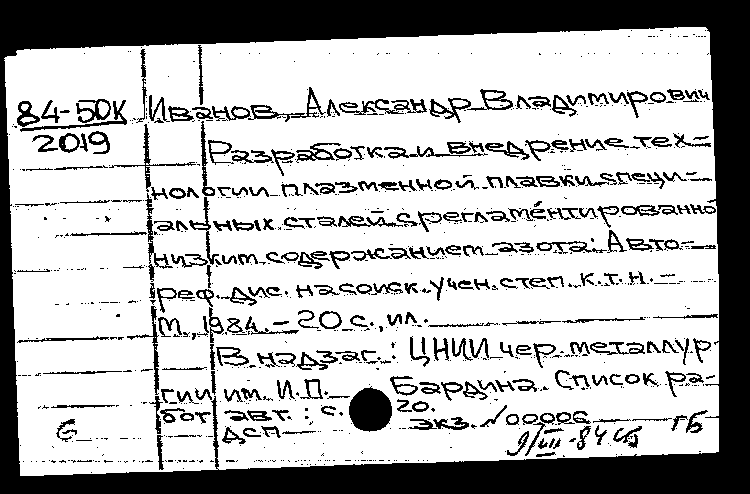 84-50К Иванов, Александр Владимирович
2019
Разработка и внедрение тех-
нологии плазменной плавки специ-
альных сталей с регламентированно
низким содержанием азота: Авто-
реф. дис. на соиск. учен. степ. к.т.н. -
М., 1984. - 20 с., ил.
В надзаг.: ЦНИИ чер. металлур-
гии им. И.П. Бардина. Список ра-
бот авт.: с. 20.
ДСП экз. №00006
9/III-84 ГБ
6